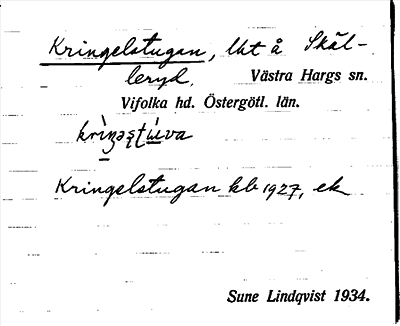 Kringelstugan, lht å Skäl-
leryd, Västra Hargs sn.
Vifolka hd. Östergötl. län.
Kringelstugan kb 1927, ek
Sune Lindqvist 1934.